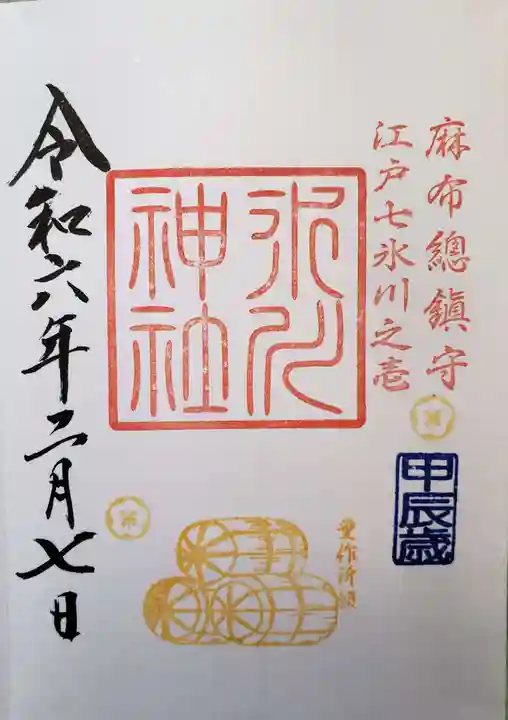 麻布總鎮守
江戸七氷川之壱
甲辰歳
氷川
神社
豊作祈願
令和六年二月七日